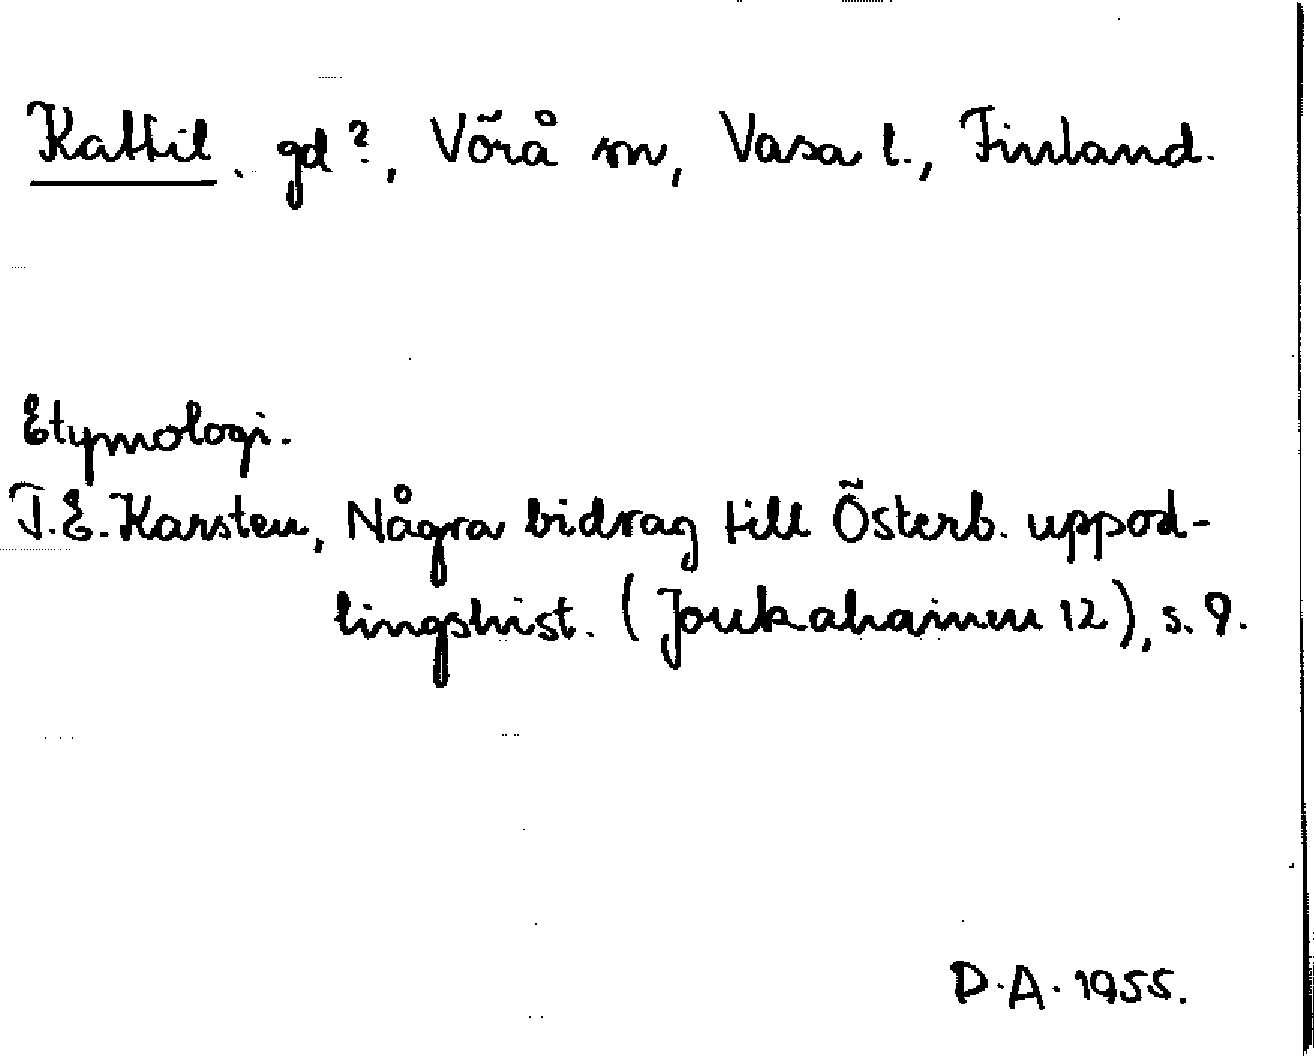 Kattil. gd?, Vörå sn, Vasa l., Finland.
Etymologi.
T.E. Karsten, Några bidrag till Österb. uppod-
lingshist. (Joukahainen 12), s. 9.
D.A. 1955.